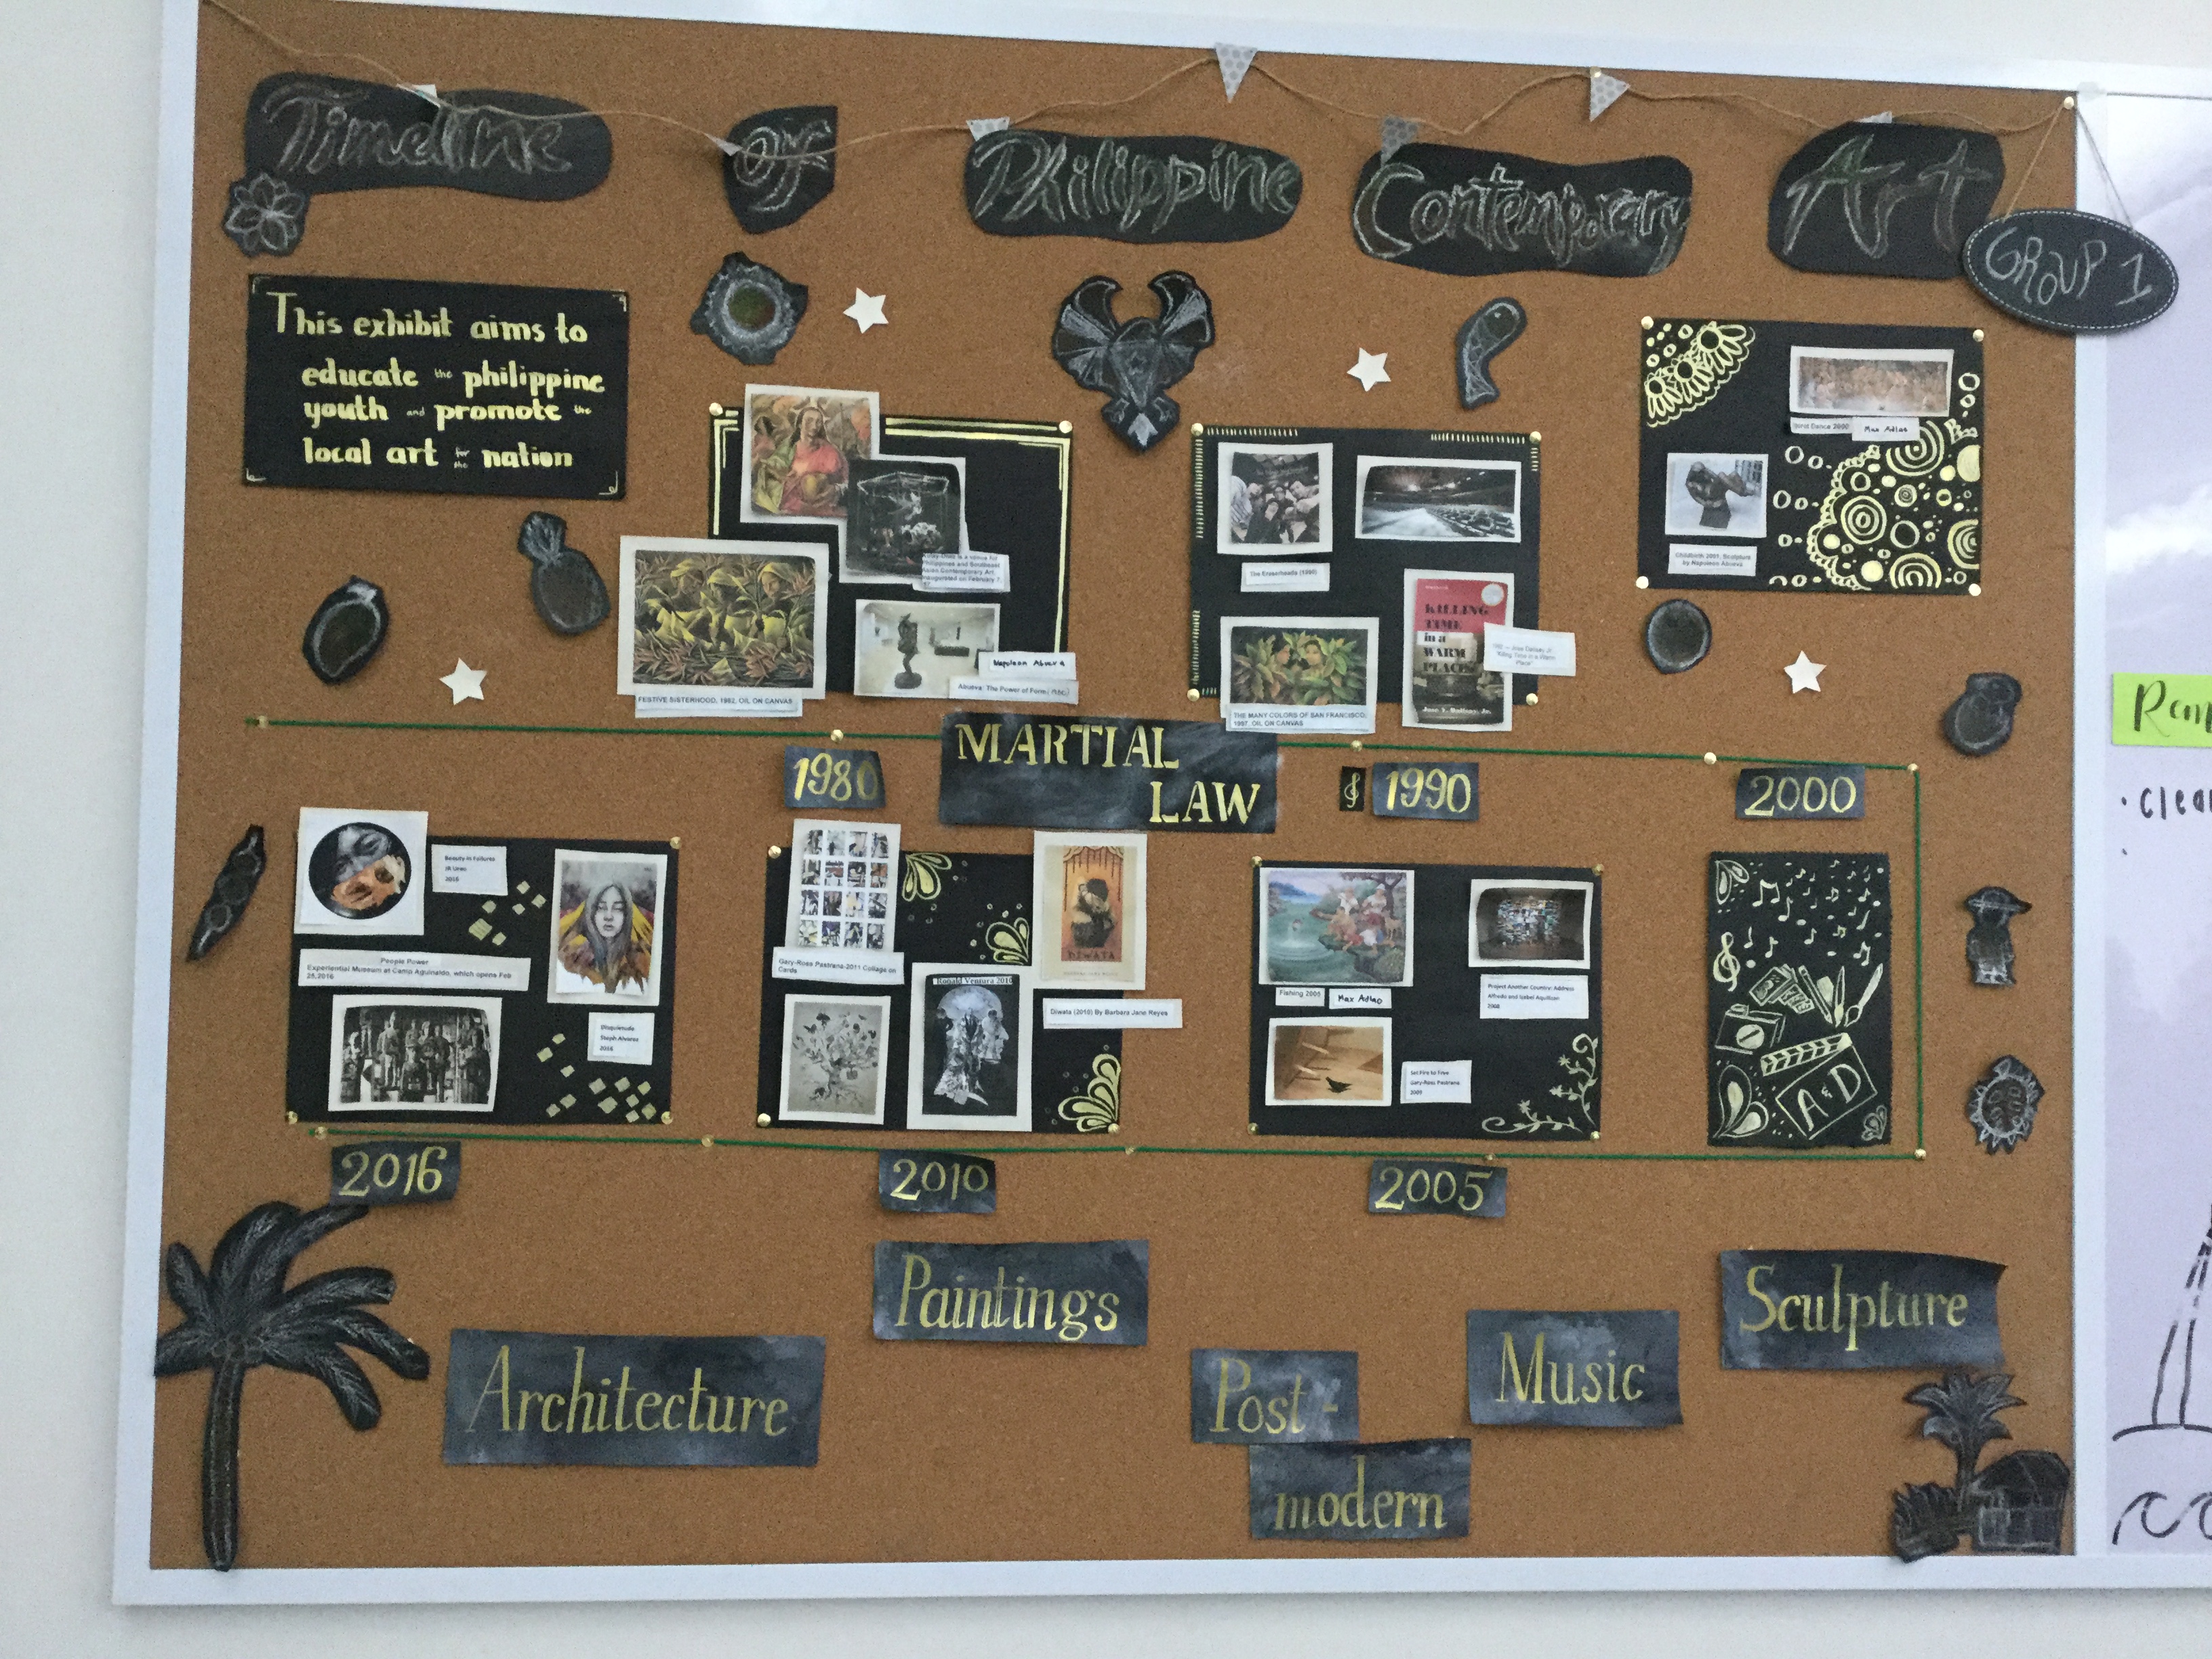 Timeline of Philippine Contemporary Art
GROUP 1
This exhibit aims to
educate the philippine
youth and promote the
local art for the nation
Philippines and Southeast
Asian Contemporary Art.
inaugurated on February 7,
FESTIVE SISTERHOOD, 1982, OIL ON CANVAS
Napoleon Abueva
Abueva: The Power of Form
The Eraserheads (1990)
THE MANY COLORS OF SAN FRANCISCO,
1997, OIL ON CANVAS
KILLING
TIME
in a
WARM
PLACE
Jose Y. Dalisay, Jr.
"Killing Time in a Warm
Place"
Dance 2000
Max Adlao
Childbirth 2001, Sculpture
by Napoleon Abueva
1980
MARTIAL
LAW
1990
2000
Beauty in Failures
2016
People Power
Experiential Museum at Camp Aguinaldo, which opens Feb
25,2016
Disquietude
Steph Alvarez
2016
Gary-Ross Pastrana-2011 Collage on
Cards
DIWATA
Ronald Ventura 2010
Diwata (2010) By Barbara Jane Reyes
Fishing 2005
Max Adlao
Project Another Country: Address
Alfredo and Isabel Aquilizan
2008
Set Fire to Free
Gary-Ross Pastrana
2009
A&D
2016
2010
2005
Architecture
Paintings
Post-
modern
Music
Sculpture